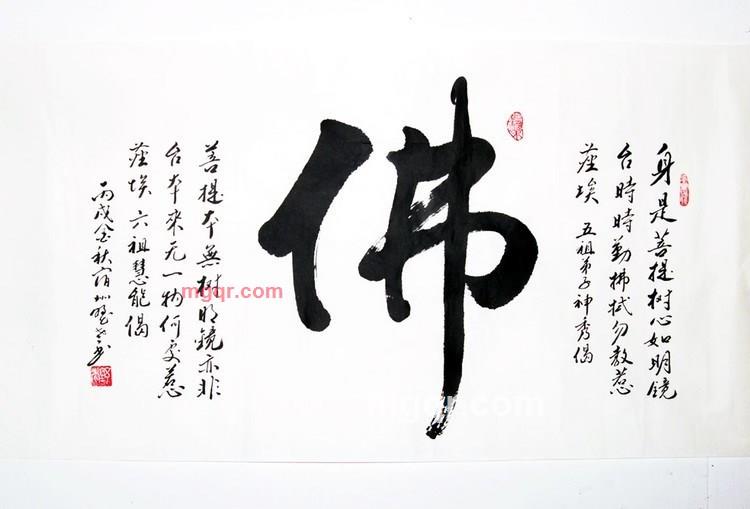 身是菩提樹心如明鏡
台時時勤拂拭勿教惹
塵埃 五祖弟子神秀偈
佛
菩提本無樹明鏡亦非
台本來无一物何處惹
塵埃 六祖慧能偈
丙戌金秋
mgqr.com
mgqr.com